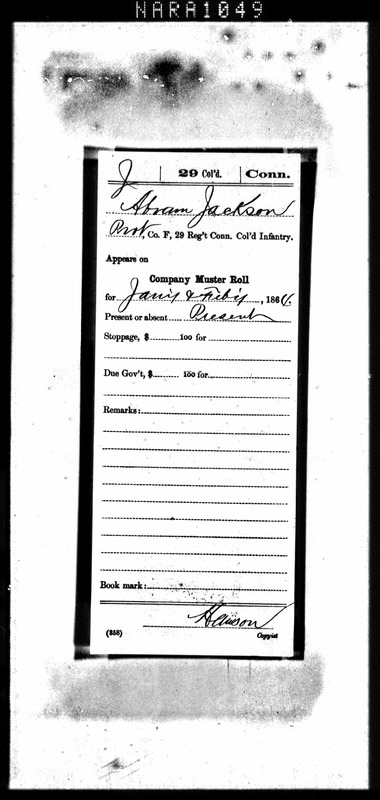 NARA1049
J | 29 Col'd. | Conn.
Abram Jackson
Pvt., Co. F, 29 Reg't Conn. Col'd Infantry.
Appears on
Company Muster Roll
for Jan'y & Feb'y, 1864.
Present or absent Present
Stoppage, $ 100 for
Due Gov't, $ 100 for
Remarks:
Book mark:
(358)
Copyist